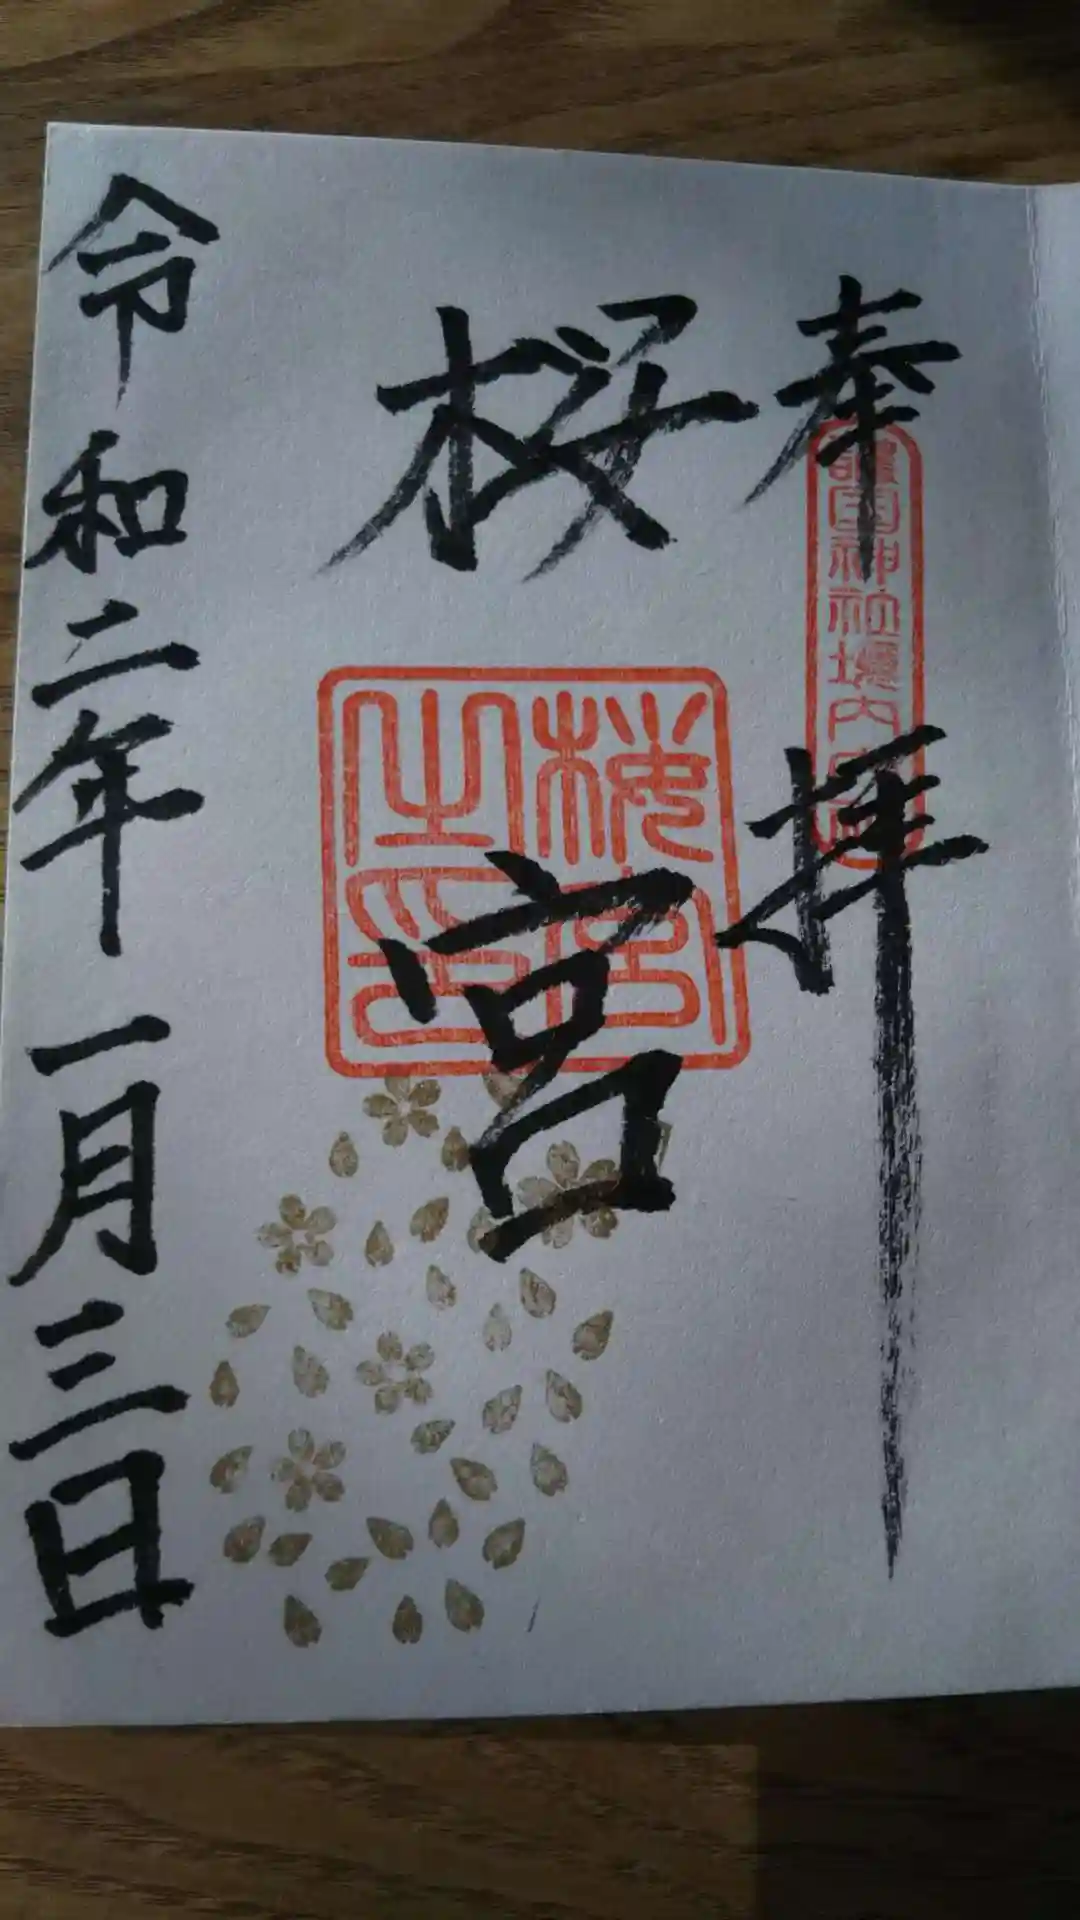 奉拝
護国神社境内
桜宮
桜宮之印
令和二年一月三日